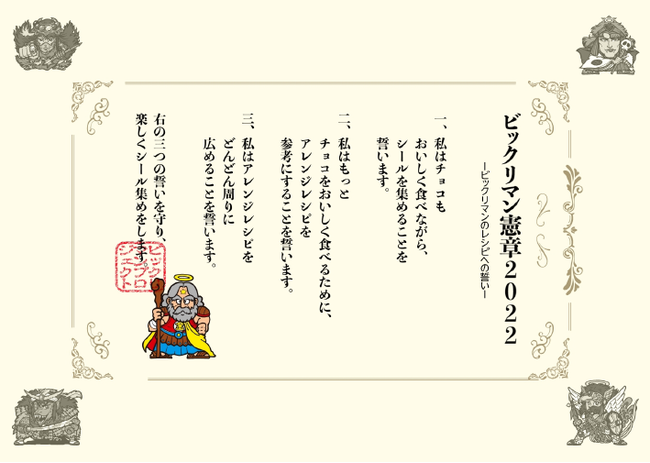 ビックリマン憲章2022
ービックリマンのレシピへの誓いー
一、私はチョコも
おいしく食べながら、
シールを集めることを
誓います。
二、私はもっと
チョコをおいしく食べるために、
アレンジレシピを
参考にすることを誓います。
三、私はアレンジレシピを
どんどん周りに
広めることを誓います。
右の三つの誓いを守り、
楽しくシール集めをします。
ビック
リンプロ
ジェクト